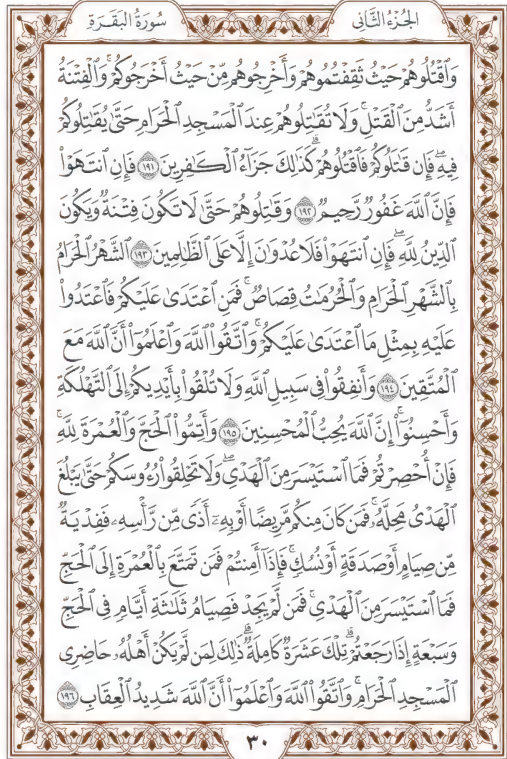 الجُزْءُ الثَّانِي سُورَةُ البَقَرَةِ
وَٱقْتُلُوهُمْ حَيْثُ ثَقِفْتُمُوهُمْ وَأَخْرِجُوهُم مِّنْ حَيْثُ أَخْرَجُوكُمْ ۚ وَٱلْفِتْنَةُ
أَشَدُّ مِنَ ٱلْقَتْلِ ۚ وَلَا تُقَٰتِلُوهُمْ عِندَ ٱلْمَسْجِدِ ٱلْحَرَامِ حَتَّىٰ يُقَٰتِلُوكُمْ
فِيهِ ۖ فَإِن قَٰتَلُوكُمْ فَٱقْتُلُوهُمْ ۗ كَذَٰلِكَ جَزَآءُ ٱلْكَٰفِرِينَ ١٩١ فَإِنِ ٱنتَهَوْا۟
فَإِنَّ ٱللَّهَ غَفُورٌ رَّحِيمٌ ١٩٢ وَقَٰتِلُوهُمْ حَتَّىٰ لَا تَكُونَ فِتْنَةٌ وَيَكُونَ
ٱلدِّينُ لِلَّهِ ۖ فَإِنِ ٱنتَهَوْا۟ فَلَا عُدْوَٰنَ إِلَّا عَلَى ٱلظَّٰلِمِينَ ١٩٣ ٱلشَّهْرُ ٱلْحَرَامُ
بِٱلشَّهْرِ ٱلْحَرَامِ وَٱلْحُرُمَٰتُ قِصَاصٌ ۚ فَمَنِ ٱعْتَدَىٰ عَلَيْكُمْ فَٱعْتَدُوا۟
عَلَيْهِ بِمِثْلِ مَا ٱعْتَدَىٰ عَلَيْكُمْ ۚ وَٱتَّقُوا۟ ٱللَّهَ وَٱعْلَمُوٓا۟ أَنَّ ٱللَّهَ مَعَ
ٱلْمُتَّقِينَ ١٩٤ وَأَنفِقُوا۟ فِى سَبِيلِ ٱللَّهِ وَلَا تُلْقُوا۟ بِأَيْدِيكُمْ إِلَى ٱلتَّهْلُكَةِ
وَأَحْسِنُوٓا۟ ۛ إِنَّ ٱللَّهَ يُحِبُّ ٱلْمُحْسِنِينَ ١٩٥ وَأَتِمُّوا۟ ٱلْحَجَّ وَٱلْعُمْرَةَ لِلَّهِ ۚ
فَإِنْ أُحْصِرْتُمْ فَمَا ٱسْتَيْسَرَ مِنَ ٱلْهَدْىِ ۖ وَلَا تَحْلِقُوا۟ رُءُوسَكُمْ حَتَّىٰ يَبْلُغَ
ٱلْهَدْىُ مَحِلَّهُۥ ۚ فَمَن كَانَ مِنكُم مَّرِيضًا أَوْ بِهِۦٓ أَذًى مِّن رَّأْسِهِۦ فَفِدْيَةٌ
مِّن صِيَامٍ أَوْ صَدَقَةٍ أَوْ نُسُكٍ ۚ فَإِذَآ أَمِنتُمْ فَمَن تَمَتَّعَ بِٱلْعُمْرَةِ إِلَى ٱلْحَجِّ
فَمَا ٱسْتَيْسَرَ مِنَ ٱلْهَدْىِ ۚ فَمَن لَّمْ يَجِدْ فَصِيَامُ ثَلَٰثَةِ أَيَّامٍ فِى ٱلْحَجِّ
وَسَبْعَةٍ إِذَا رَجَعْتُمْ ۗ تِلْكَ عَشَرَةٌ كَامِلَةٌ ۗ ذَٰلِكَ لِمَن لَّمْ يَكُنْ أَهْلُهُۥ حَاضِرِى
ٱلْمَسْجِدِ ٱلْحَرَامِ ۚ وَٱتَّقُوا۟ ٱللَّهَ وَٱعْلَمُوٓا۟ أَنَّ ٱللَّهَ شَدِيدُ ٱلْعِقَابِ ١٩٦
٣٠